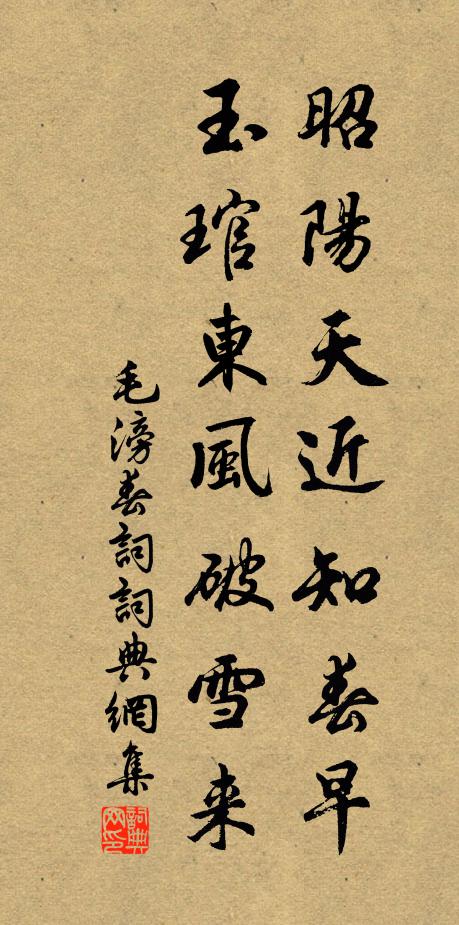 昭陽天近知春早
玉琯東風破雪来
毛滂春詞詞典網集
詞典网印